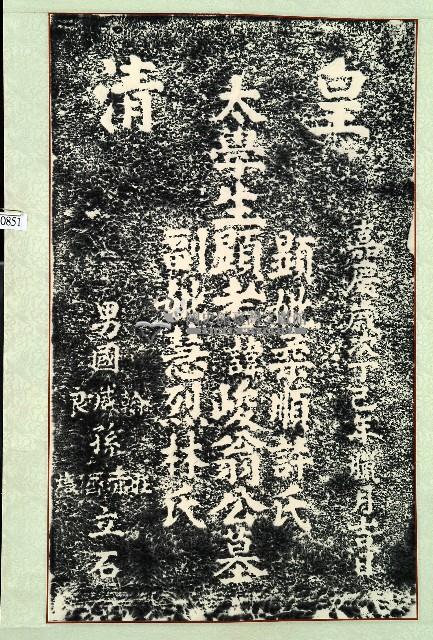 皇清
嘉慶歲次丁巳年臘月吉日
顯妣柔順許氏
太學生顯考諱峻翁公墓
副妣烈林氏
男國 良 孫 立石
0851